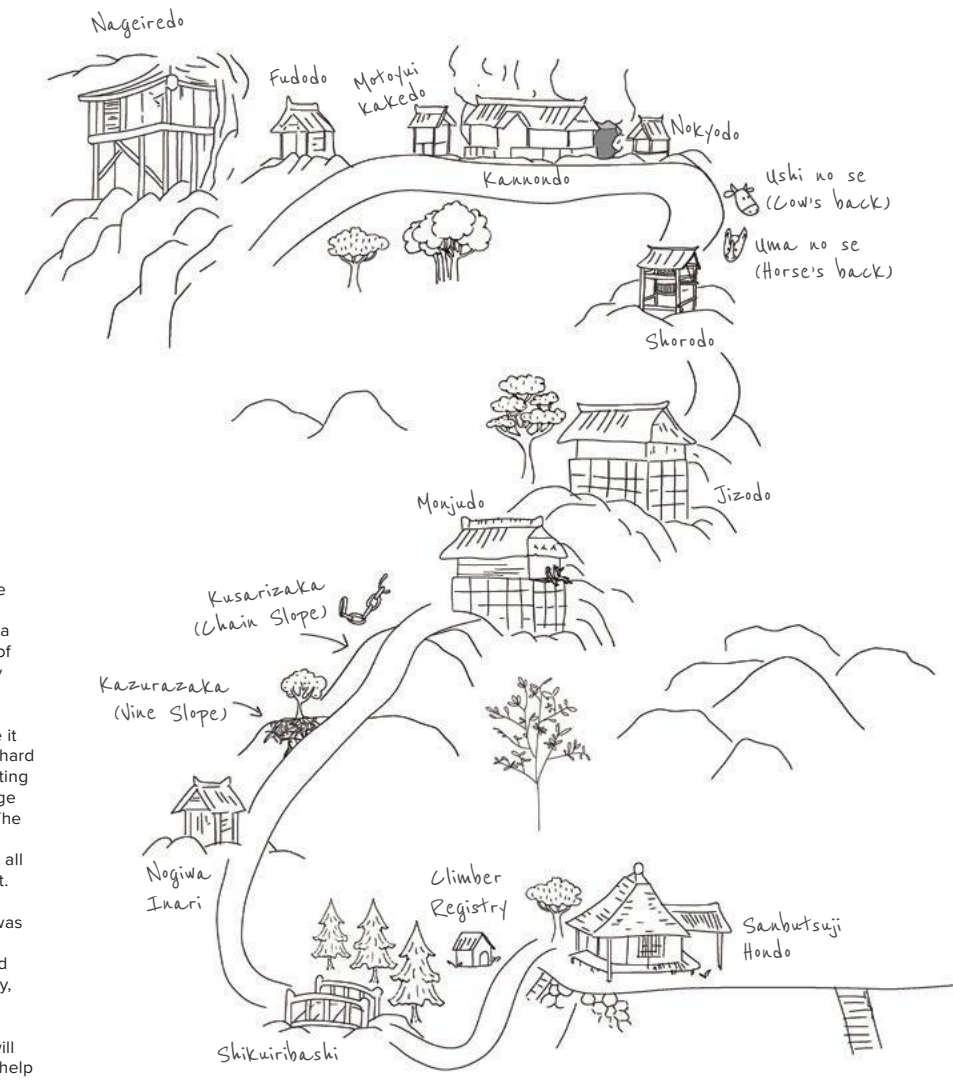 Nageiredo
Fudodo
Motoyui
Kakedo
Nokyodo
Kannondo
Ushi no se
(Cow's back)
Uma no se
(Horse's back)
Shorodo
Jizodo
Monjudo
Kusarizaka
(Chain Slope)
Kazurazaka
(Vine Slope)
Nogiwa
Inari
Climber
Registry
Sanbutsuji
Hondo
Shikuiribashi
e
a
of
y
e it
hard
ting
ge
The
all
t.
was
d
y,
will
help